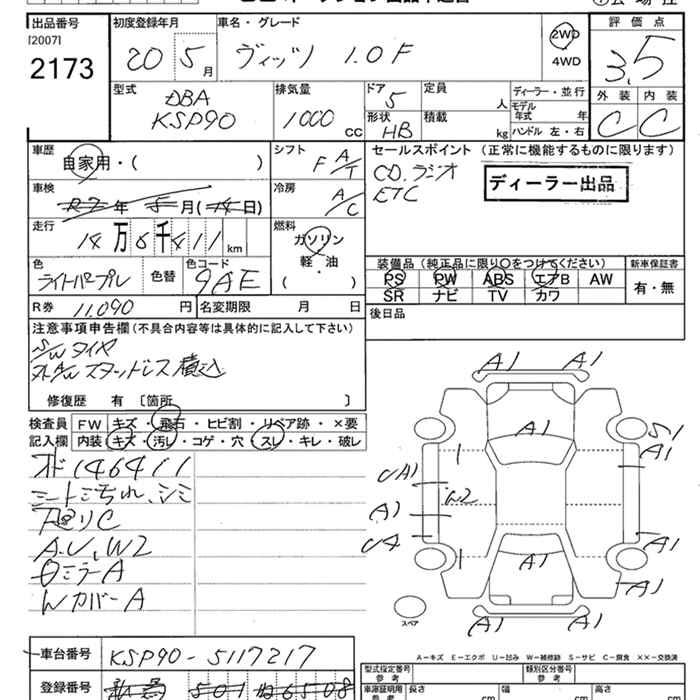 出品番号
[2007]
2173
初度登録年月
20 5 月
車名・グレード
ヴィッツ 1.0F
2WD
4WD
評価点
3.5
外装 内装
C C
型式
DBA
KSP90
排気量
1000 cc
ドア 5
形状 HB
定員 人
積載 kg
ディーラー・並行
モデル年式 年
ハンドル 左・右
車歴
自家用・( )
シフト
F A/T
セールスポイント (正常に機能するものに限ります)
CD.ラジオ
ETC
ディーラー出品
車検
年 月( 日)
冷房
A/C
走行
14万6千411 km
燃料
ガソリン
軽・油
( )
色
ライトパープル
色替
色コード
9AE
装備品 (純正品に限り〇をつけてください)
PS PW ABS エアB AW
SR ナビ TV カワ
新車保証書
有・無
R券 11,090 円
名変期限 月 日
後日品
注意事項申告欄 (不具合内容等は具体的に記入して下さい)
S/Wタイヤ
スタッドレス積込
修復歴 有 〔箇所 〕
検査員記入欄
FW キズ・飛石・ヒビ割・リペア跡・×要
内装 キズ・汚レ・コゲ・穴・スレ・キレ・破レ
146411
シート汚れ、シミ
下廻りC
A.U、W2
ミラーA
WカバーA
A1 A1
A1
S1
A1
UA1
W2
A1
UA
A1
A1
A1
A1 A1
スペア
A−キズ E−エクボ U−凹み W−補修跡 S−サビ C−腐食 ××−交換済
車台番号 KSP90-5117217
登録番号 501 ね 6508
型式指定番号 参考
類別区分番号 参考
車庫証明用 参考
長さ cm
幅 cm
高さ cm